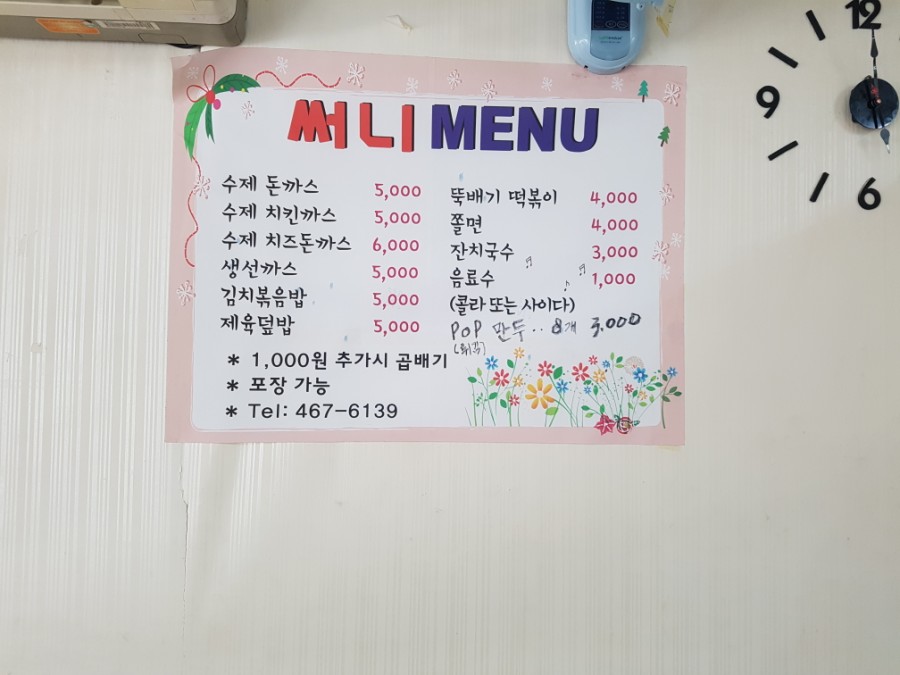 써니 MENU
수제 돈까스 5,000
수제 치킨까스 5,000
수제 치즈돈까스 6,000
생선까스 5,000
김치볶음밥 5,000
제육덮밥 5,000
* 1,000원 추가시 곱배기
* 포장 가능
* Tel: 467-6139
뚝배기 떡볶이 4,000
쫄면 4,000
잔치국수 3,000
음료수 1,000
(콜라 또는 사이다)
POP 만두.. 8개 3,000
(튀김)
12
9
6